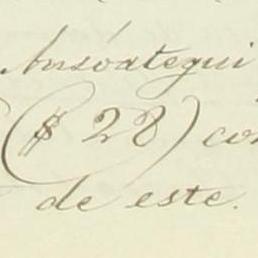 Ansóategui
($ 28) con
de este.